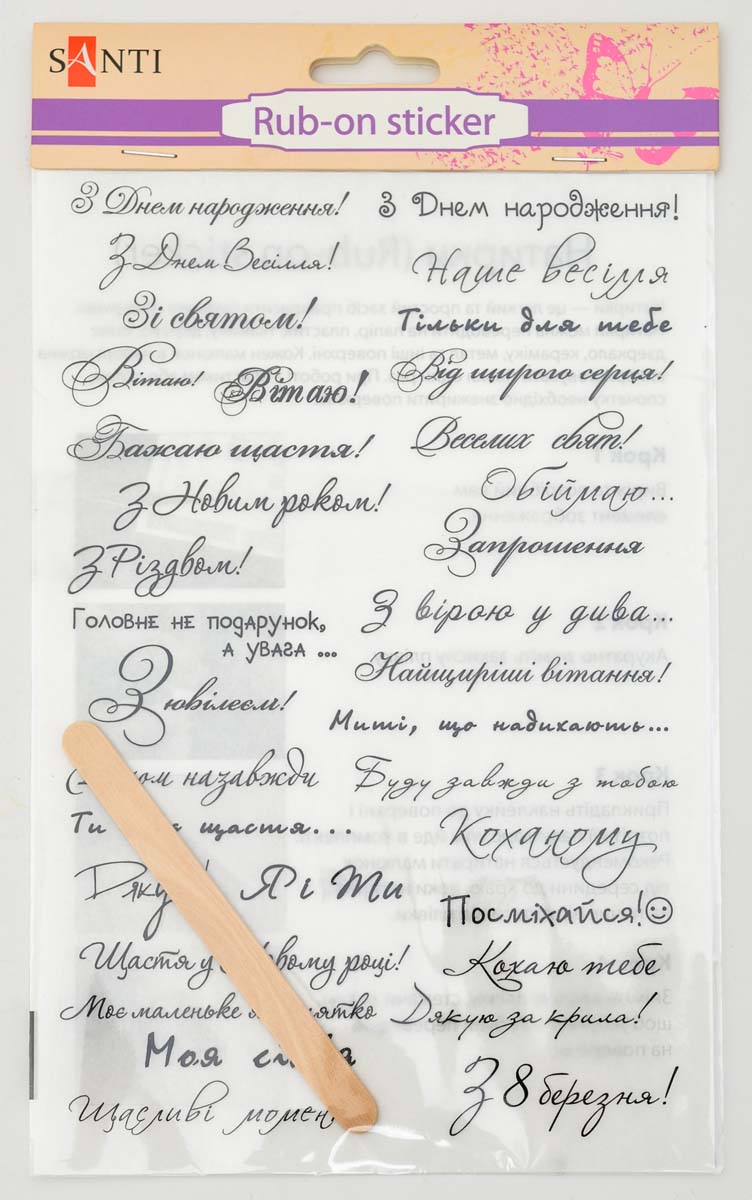 SANTI
Rub-on sticker
З Днем народження!
З Днем народження!
З Днем Весілля!
Наше весілля
Зі святом!
Тільки для тебе
Вітаю!
Вітаю!
Від щирого серця!
Бажаю щастя!
Веселих свят!
З Новим роком!
Обіймаю...
Запрошення
З Різдвом!
З вірою у дива...
Головне не подарунок,
а увага ...
Найщиріші вітання!
З ювілеєм!
Миті, що надихають...
назавжди
Буду завжди з тобою
Ти щастя...
Коханому
Я і Ти
Посміхайся!☺
Щастя у році!
Кохаю тебе
Моє маленьке
Дякую за крила!
Моя
З 8 березня!
Щасливі